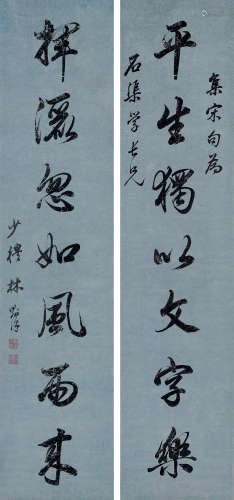 集宋句為
石渠学長兄
平生獨以文字樂
揮灑忽如風雨来
少穆林則徐